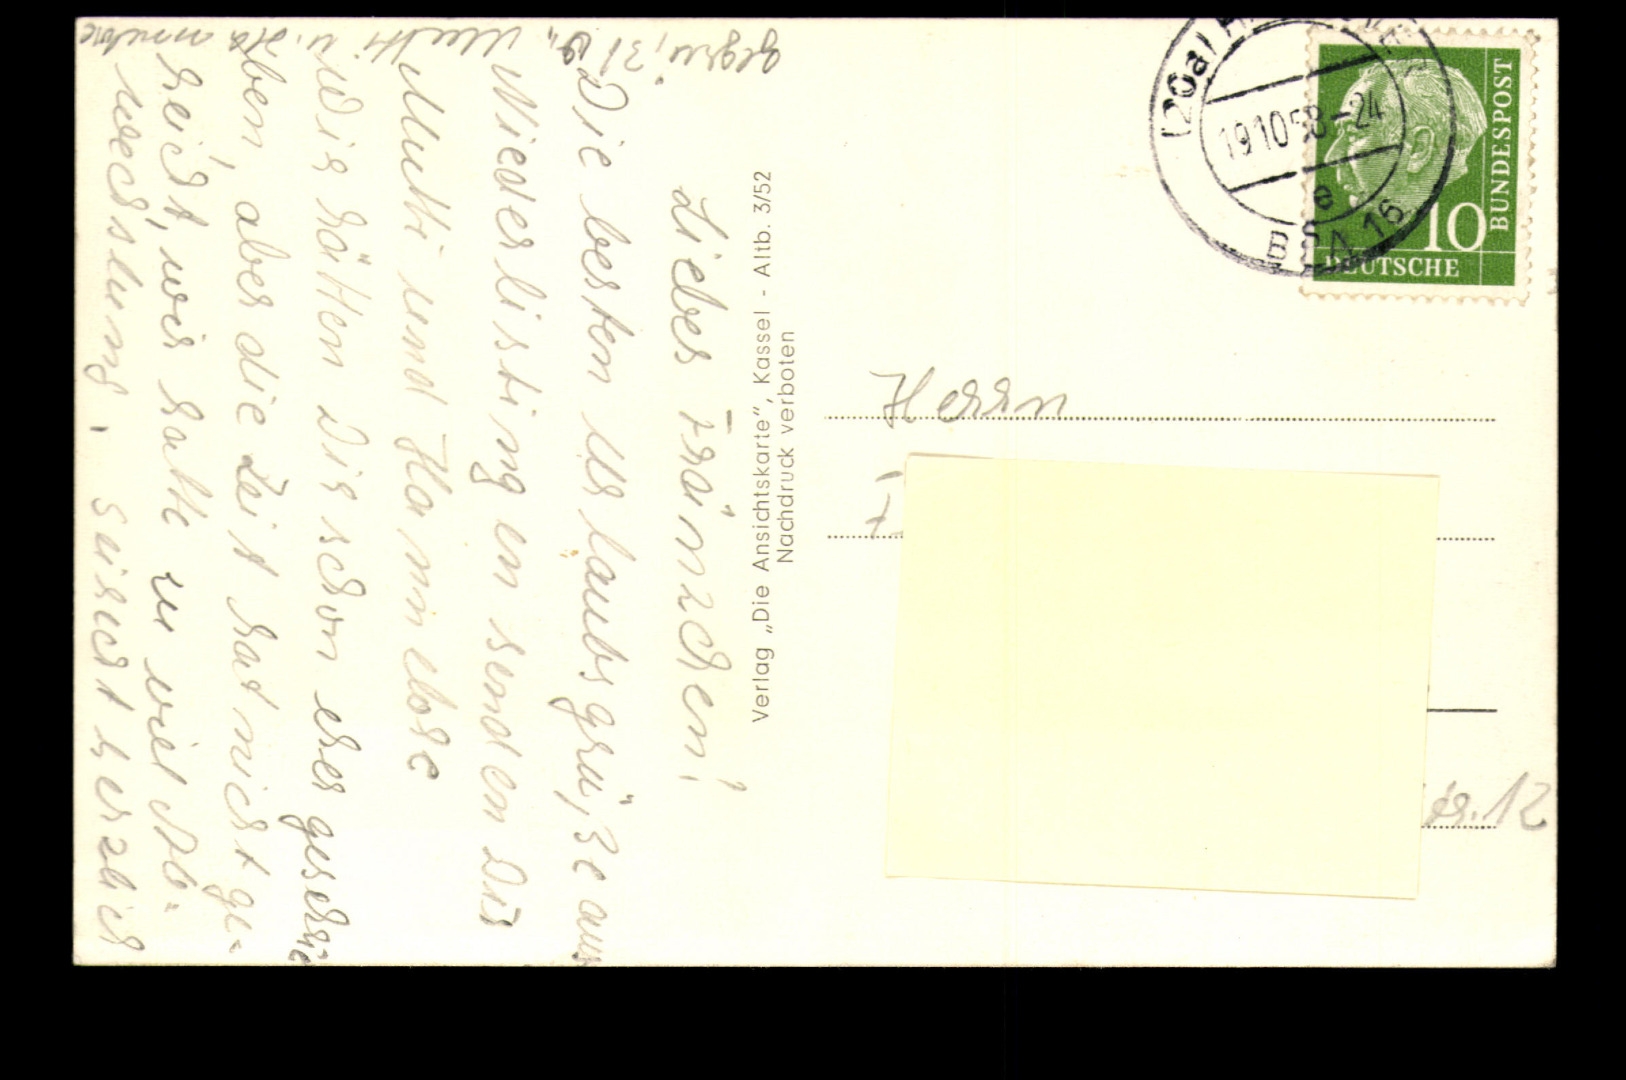 Lieber Fränzchen!
Die besten Urlaubsgrüße aus
Niederlistingen senden Dir
Mutti und Hannelore
Wir hätten Dir schon eher geschrie
ben, aber die Zeit hat nicht ge=
reicht, wir hatte zu viel Ab=
wechslung. Seirest herzlich
gegrüßt v.
Mutti u. Ha
nnelore
Verlag „Die Ansichtskarte“, Kassel - Altb. 3/52
Nachdruck verboten
(20a)
19.10.58-24
e
BPA 16
10
DEUTSCHE
BUNDESPOST
Herrn
F
Str. 12